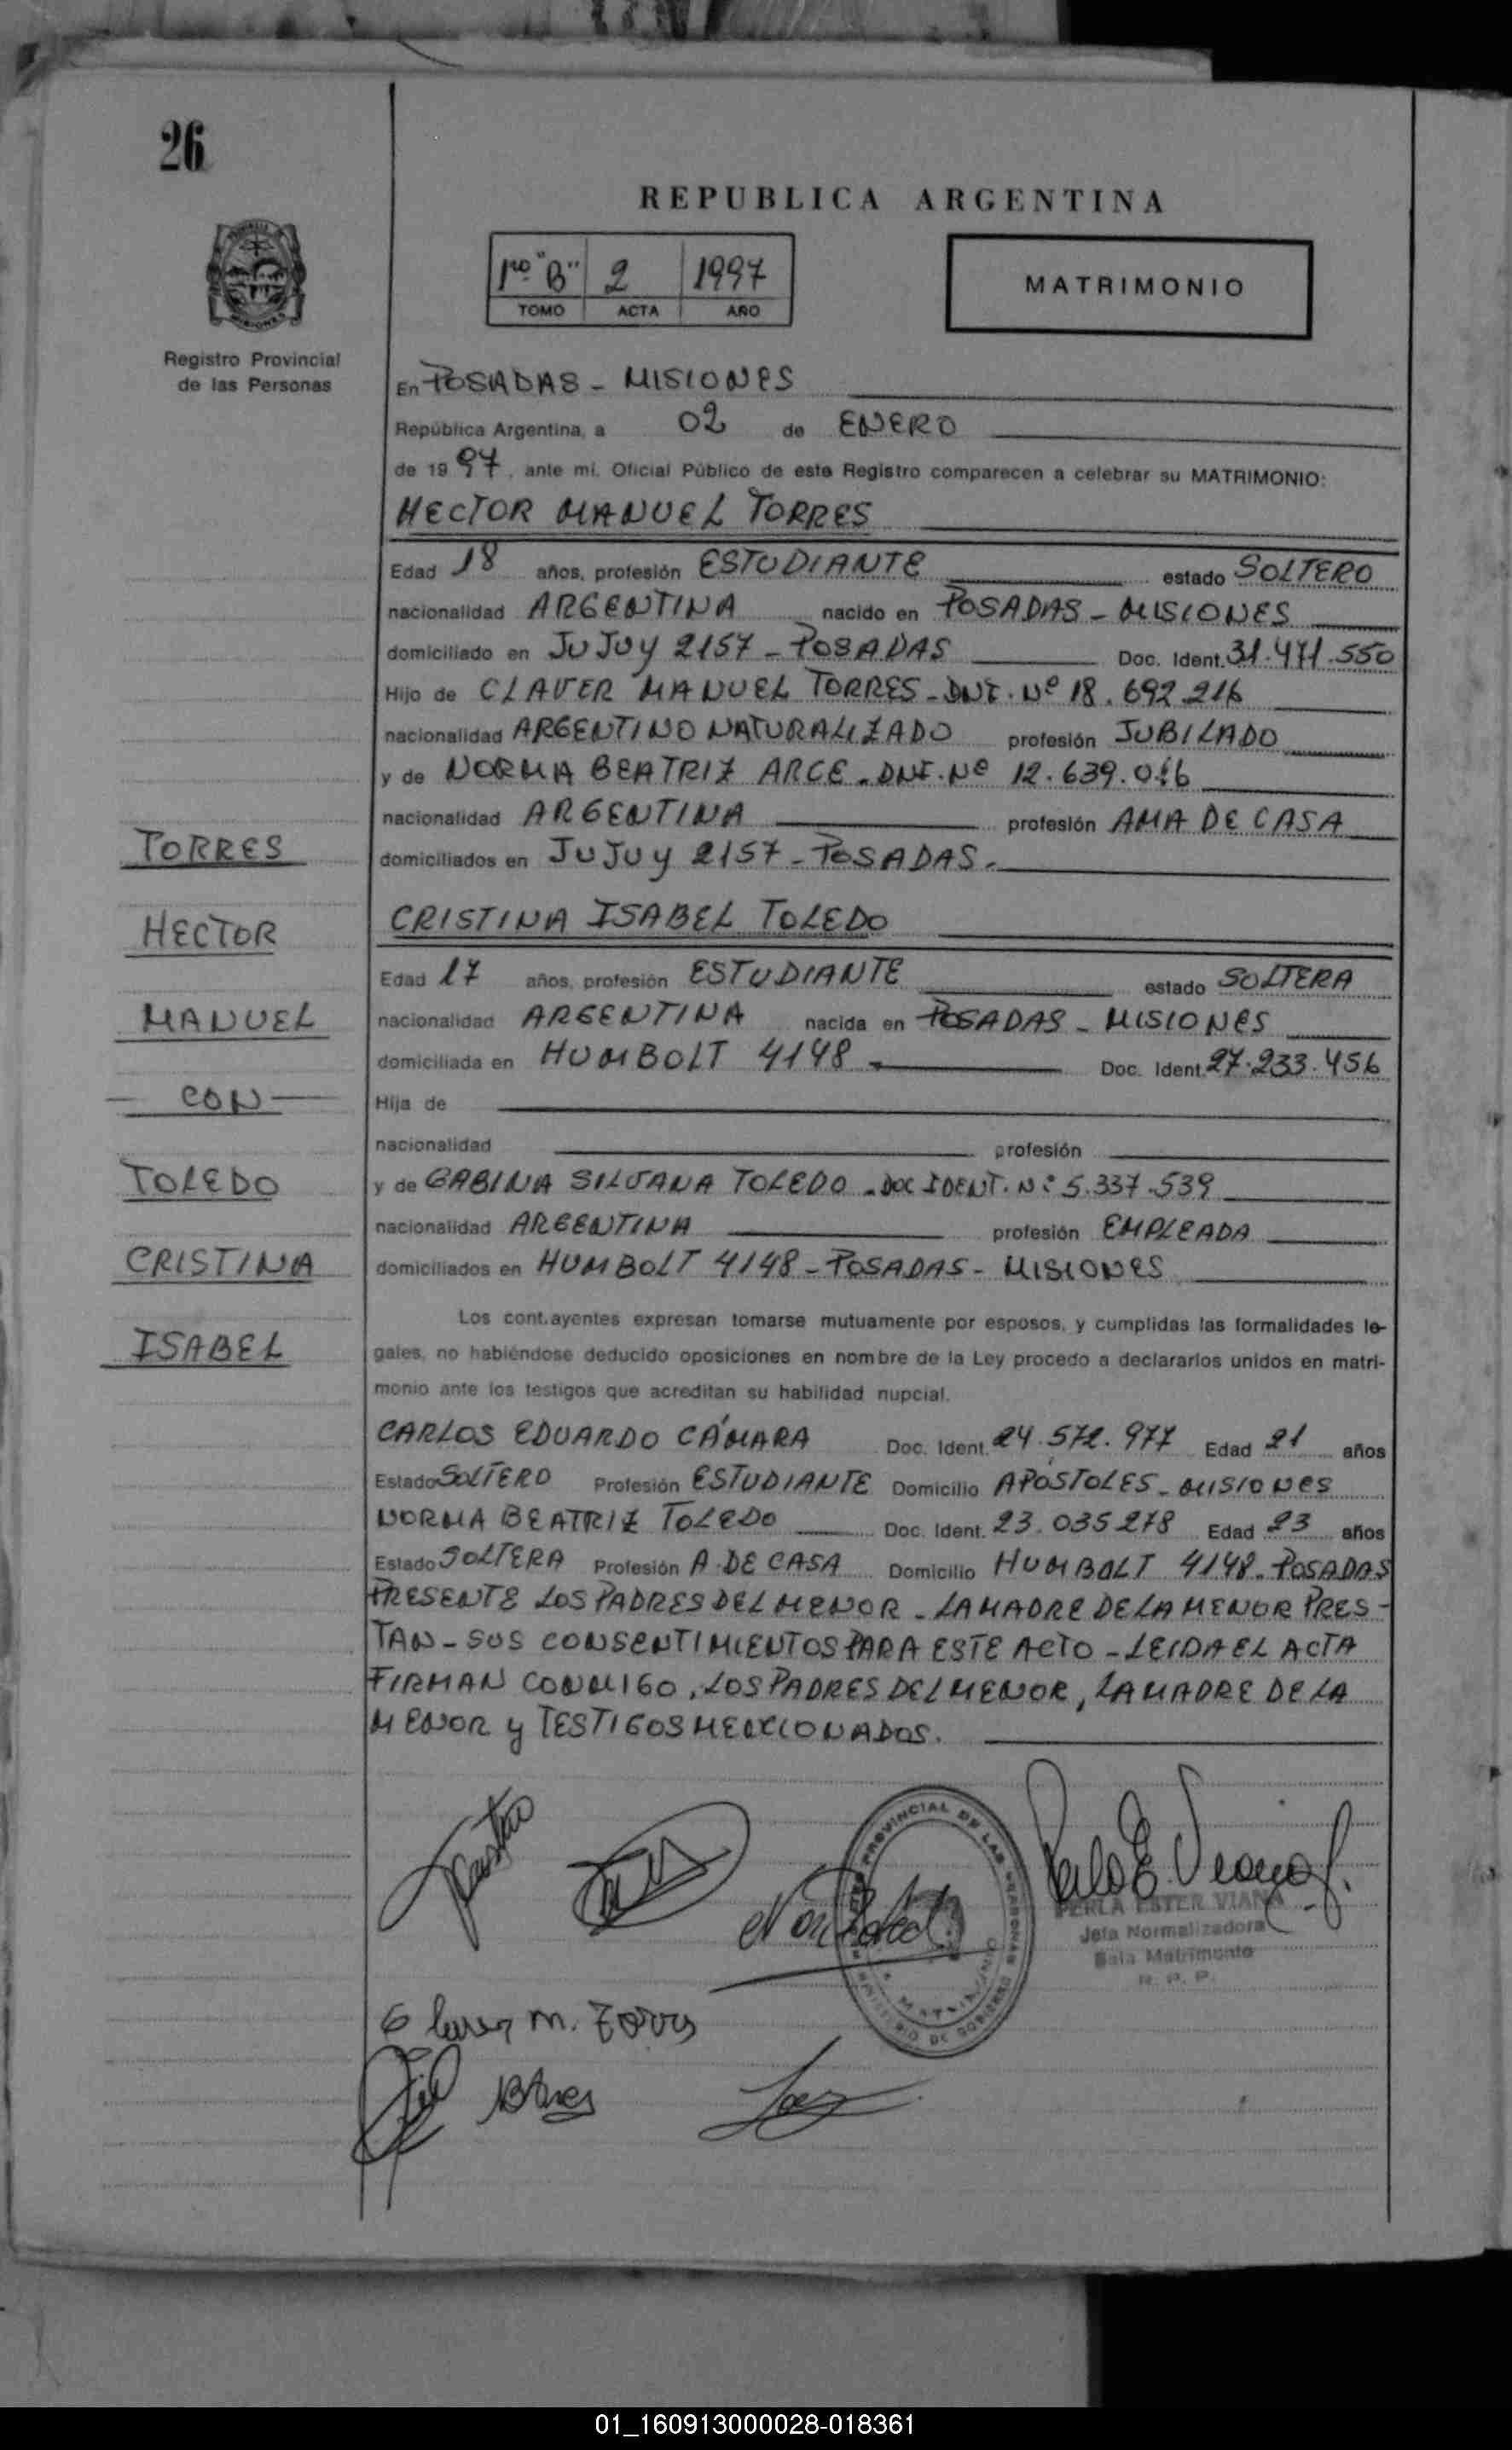 26
REPUBLICA ARGENTINA
1ro "B" 2 1997
TOMO ACTA AÑO
MATRIMONIO
Registro Provincial
de las Personas
En POSADAS - MISIONES
República Argentina, a 02 de ENERO
de 1997, ante mí, Oficial Público de este Registro comparecen a celebrar su MATRIMONIO:
HECTOR MANUEL TORRES
Edad 18 años, profesión ESTUDIANTE estado SOLTERO
nacionalidad ARGENTINA nacido en POSADAS - MISIONES
domiciliado en JUJUY 2157 - POSADAS Doc. Ident. 31.471.550
Hijo de CLAVER MANUEL TORRES - DNI. Nº 18.692.216
nacionalidad ARGENTINO NATURALIZADO profesión JUBILADO
y de NORMA BEATRIZ ARCE - DNI. Nº 12.639.
nacionalidad ARGENTINA profesión AMA DE CASA
domiciliados en JUJUY 2157 - POSADAS.
CRISTINA ISABEL TOLEDO
Edad 17 años, profesión ESTUDIANTE estado SOLTERA
nacionalidad ARGENTINA nacida en POSADAS - MISIONES
domiciliada en HUMBOLT 4148 Doc. Ident. 27.233.456
Hija de
nacionalidad profesión
y de GABINA SILVANA TOLEDO - DOC IDENT. Nº 5.337.539
nacionalidad ARGENTINA profesión EMPLEADA
domiciliados en HUMBOLT 4148 - POSADAS - MISIONES
TORRES
HECTOR
MANUEL
- CON -
TOLEDO
CRISTINA
ISABEL
Los cont.ayentes expresan tomarse mutuamente por esposos, y cumplidas las formalidades le-
gales, no habiéndose deducido oposiciones en nombre de la Ley procedo a declararlos unidos en matri-
monio ante los testigos que acreditan su habilidad nupcial.
CARLOS EDUARDO CÁMARA Doc. Ident. 24.572.977 Edad 21 años
Estado SOLTERO Profesión ESTUDIANTE Domicilio APÓSTOLES - MISIONES
NORMA BEATRIZ TOLEDO Doc. Ident. 23.035278 Edad 23 años
Estado SOLTERA Profesión A. DE CASA Domicilio HUMBOLT 4148 - POSADAS
PRESENTE LOS PADRES DEL MENOR - LA MADRE DE LA MENOR PRES-
TAN - SUS CONSENTIMIENTOS PARA ESTE ACTO - LEIDA EL ACTA
FIRMAN CONMIGO, LOS PADRES DEL MENOR, LA MADRE DE LA
MENOR y TESTIGOS MENCIONADOS.
PROVINCIAL DE LAS PERSONAS
MATRIMONIO
MINISTERIO DE GOBIERNO
PERLA ESTER VIANA
Jefa Normalizadora
Sala Matrimonio
R. P. P.
01_160913000028-018361